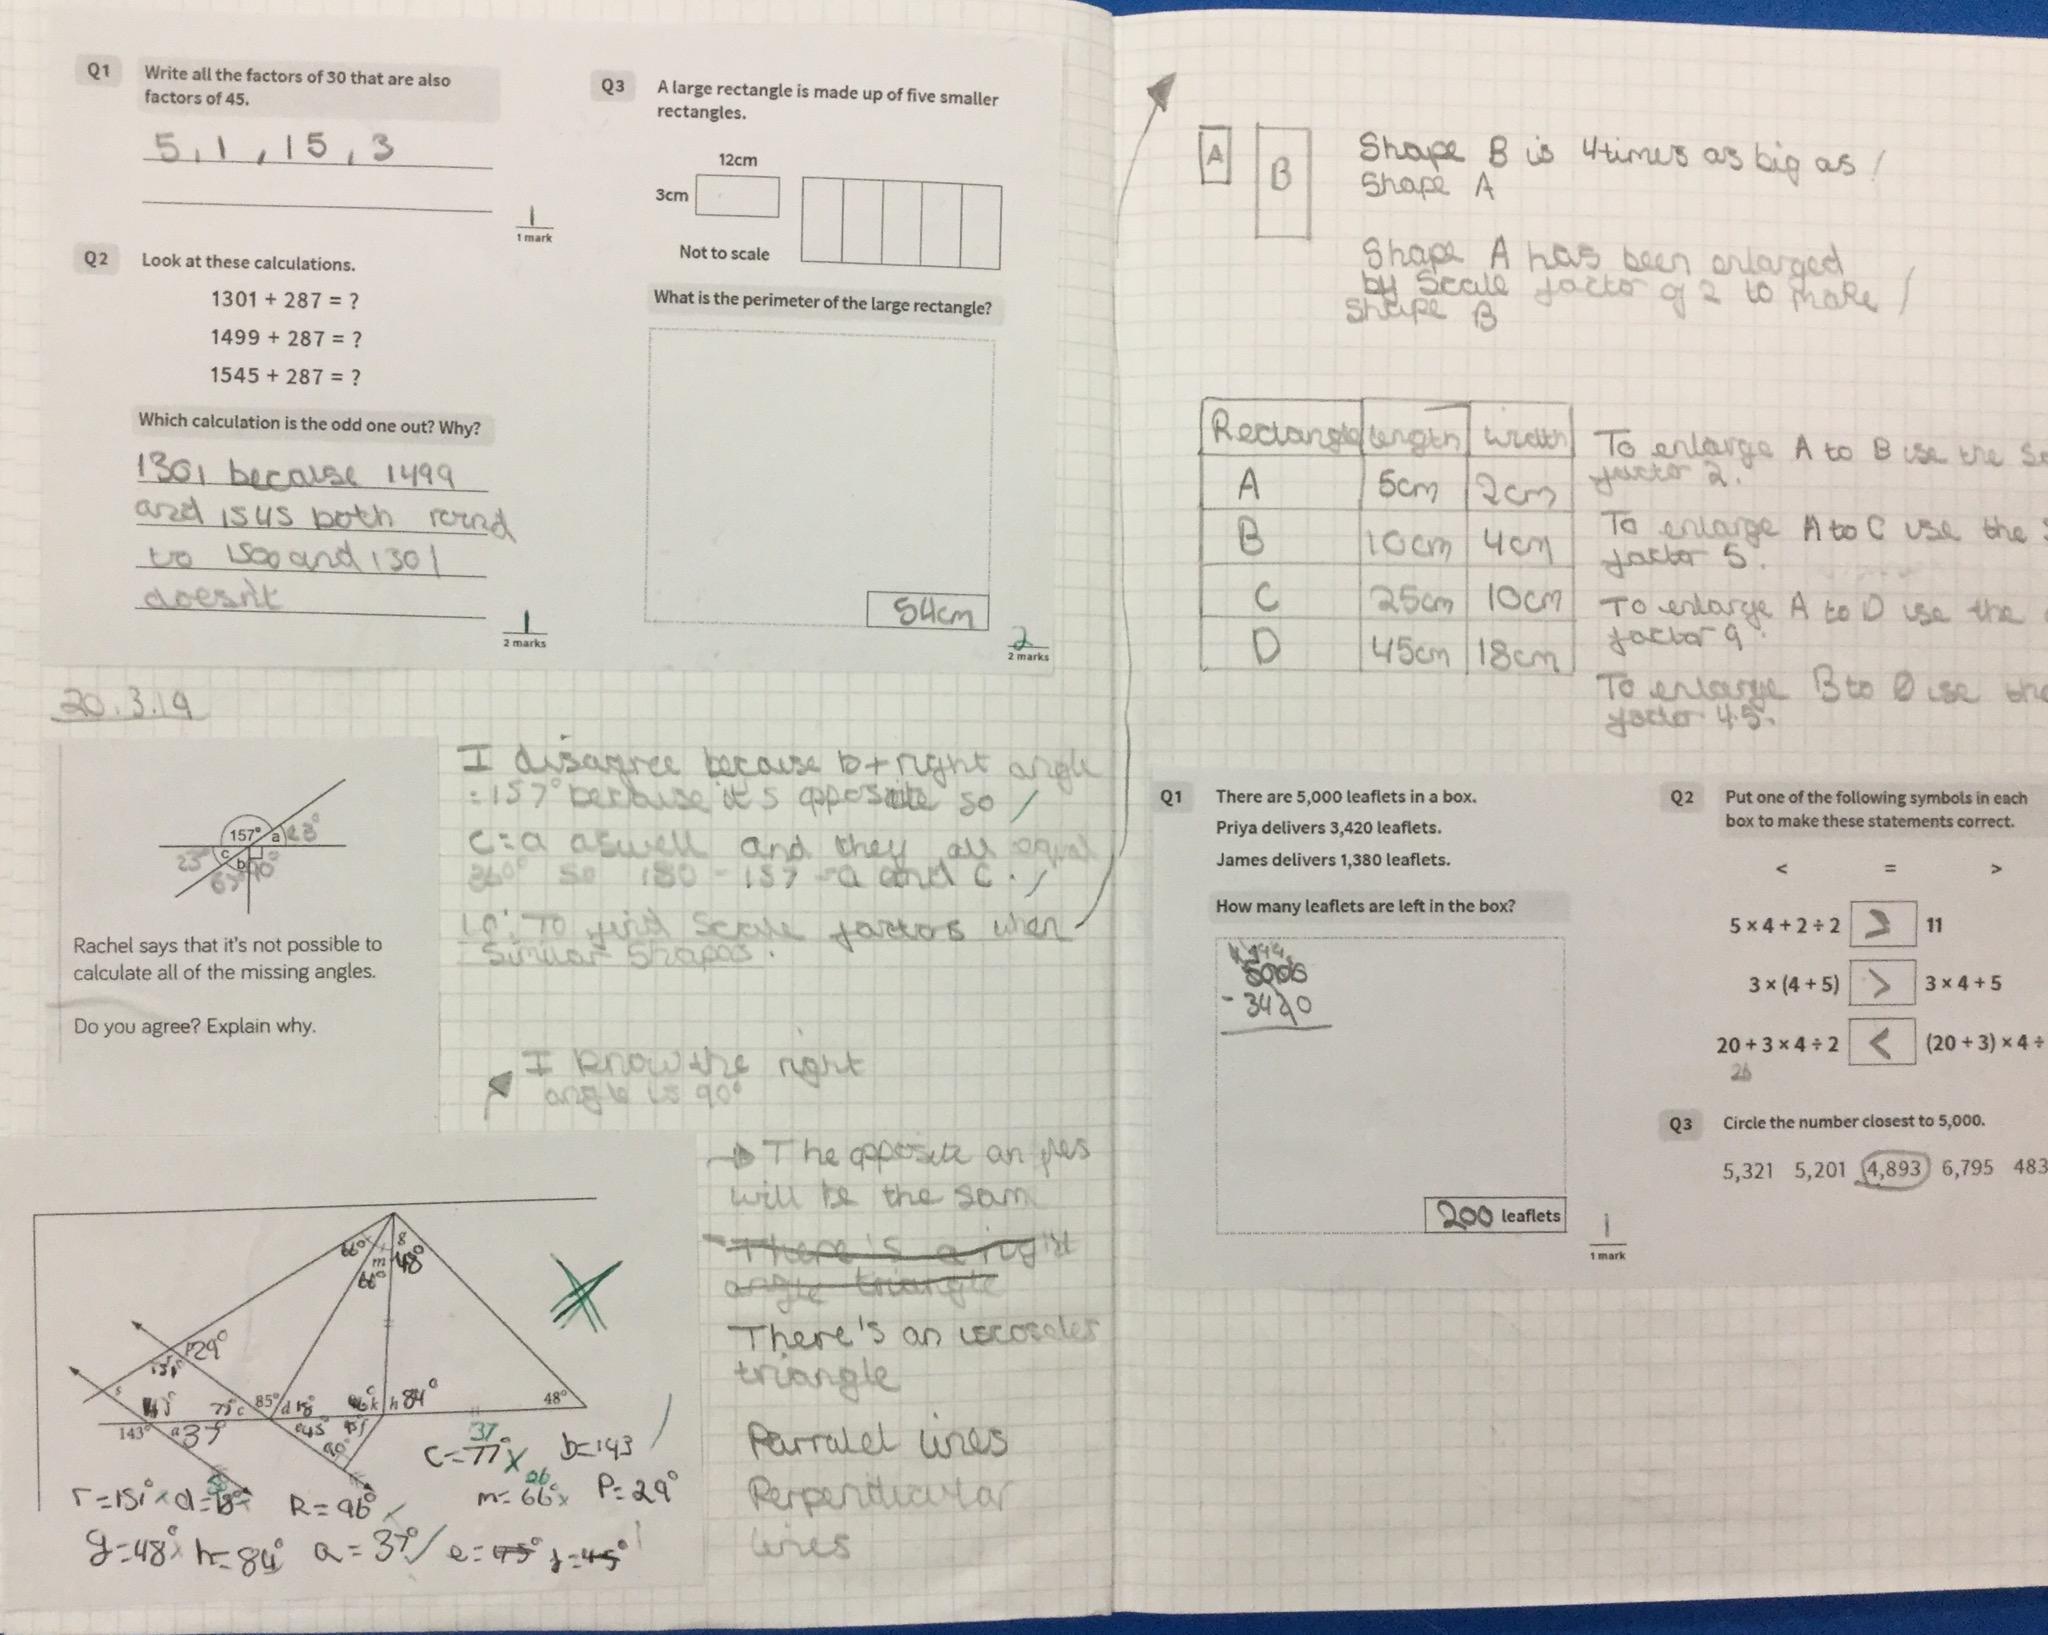 Q1
Write all the factors of 30 that are also
factors of 45.
5, 1, 15, 3
1
1 mark
Q2
Look at these calculations.
1301 + 287 = ?
1499 + 287 = ?
1545 + 287 = ?
Which calculation is the odd one out? Why?
1301 because 1499
and 1545 both rornd
to 1500 and 1301
doesn't
1
2 marks
Q3
A large rectangle is made up of five smaller
rectangles.
12cm
3cm
Not to scale
What is the perimeter of the large rectangle?
54cm
2
2 marks
20.3.19
157°
a
23°
23°
c
b
90°
Rachel says that it's not possible to
calculate all of the missing angles.
Do you agree? Explain why.
I disagree because b+right angle
=157° because it's opposite so
c=a aswell and they all equal
360° so 180 - 157 = a and c.
Lo: To find Scale factors when
Similar Shapes.
I know the right
angle is 90°
The opposite angles
will be the sam
There's a right
angle triangle
There's an iscosceles
triangle
Parralel lines
Perpendicular
lines
66°
g
m
48°
66°
29°
s
85°
d
k
h
84°
48°
143°
a
37°
c
90°
37
c=77°
b=143
r=151°
R=96°
m=66°
P=29°
g=48°
h=84°
a=37°
e=45°
f=45°
A
B
Shape B is 4times as big as
Shape A
Shape A has been enlarged
by Scale factor of 2 to make
Shape B
Rectangle length width
A 5cm 2cm
B 10cm 4cm
C 25cm 10cm
D 45cm 18cm
To enlarge A to B use the
factor 2.
To enlarge A to C use the
factor 5.
To enlarge A to D use the
factor 9.
To enlarge B to D use the
factor 4.5.
Q1
There are 5,000 leaflets in a box.
Priya delivers 3,420 leaflets.
James delivers 1,380 leaflets.
How many leaflets are left in the box?
5000
- 3420
200 leaflets
1
1 mark
Q2
Put one of the following symbols in each
box to make these statements correct.
< = >
5 × 4 + 2 ÷ 2 > 11
3 × (4 + 5) > 3 × 4 + 5
20 + 3 × 4 ÷ 2 < (20 + 3) × 4 ÷
26
Q3
Circle the number closest to 5,000.
5,321 5,201 4,893 6,795 483